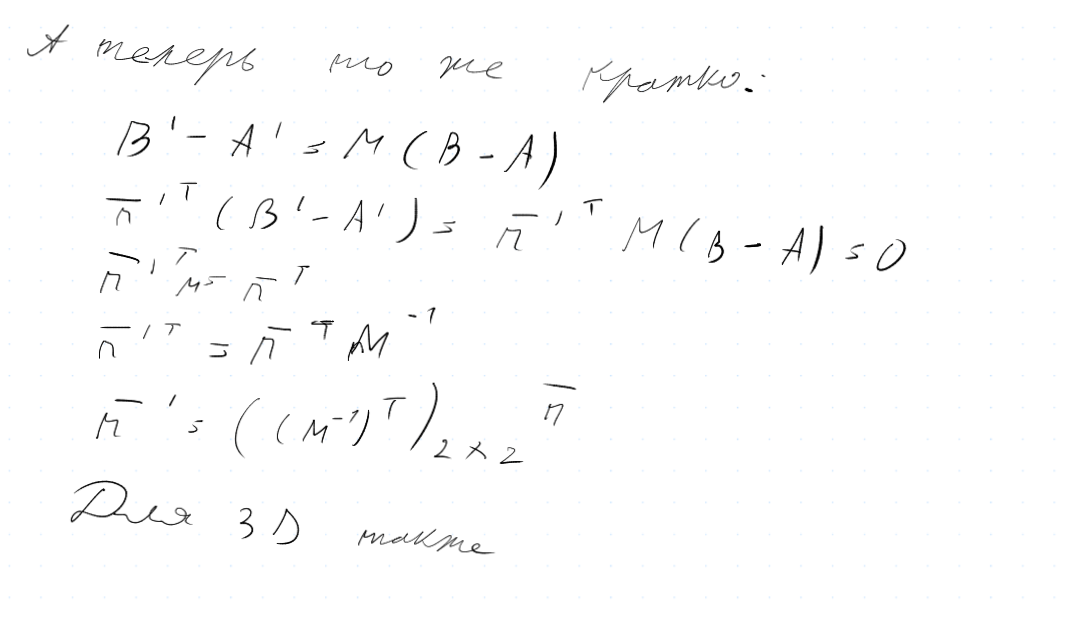 А теперь то же кратко:
B' - A' = M(B - A)
n̅'ᵀ(B' - A') = n̅'ᵀ M(B - A) = 0
n̅'ᵀ M = n̅ᵀ
n̅'ᵀ = n̅ᵀ M⁻¹
n̅' = ((M⁻¹)ᵀ)₂ₓ₂ n̅
Для 3D также